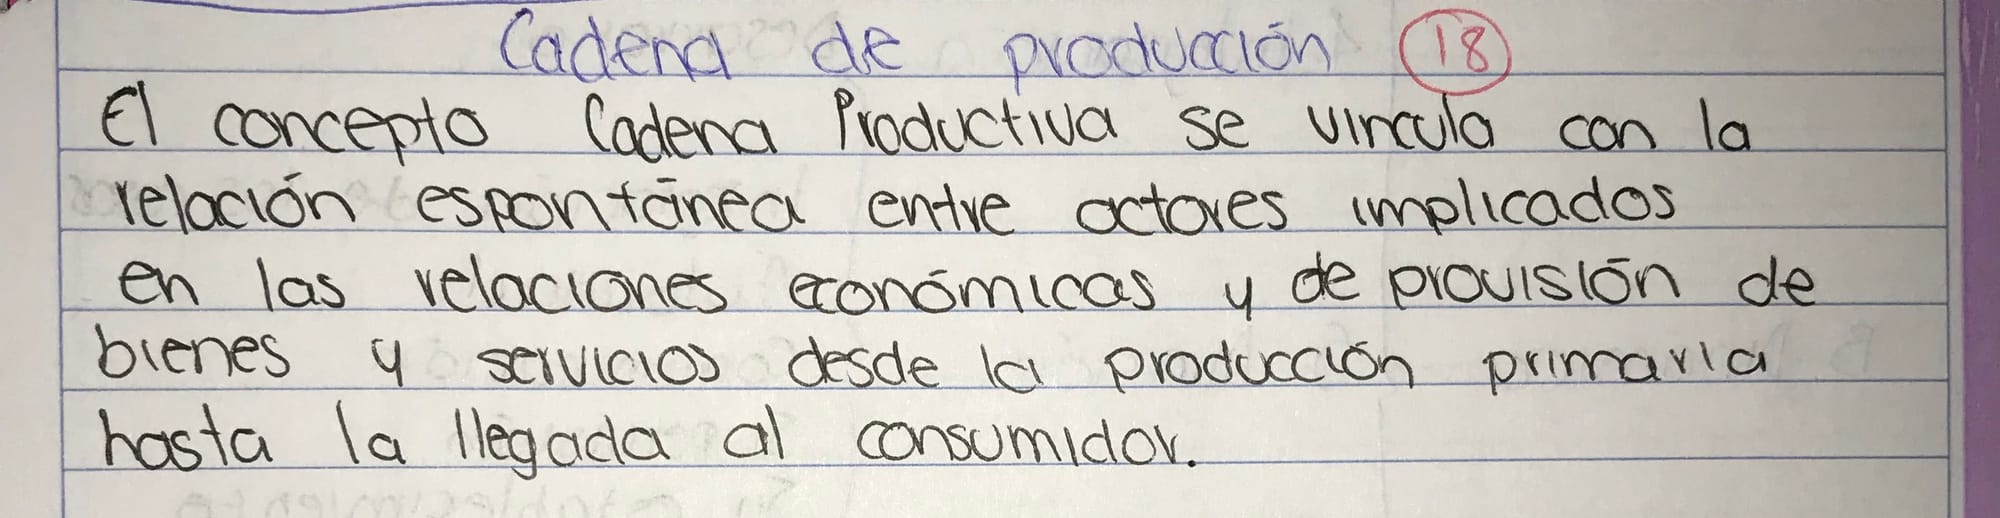 Cadena de producción 18
El concepto Cadena Productiva se vincula con la
relación espontánea entre actores implicados
en las relaciones económicas y de provisión de
bienes y servicios desde la producción primaria
hasta la llegada al consumidor.